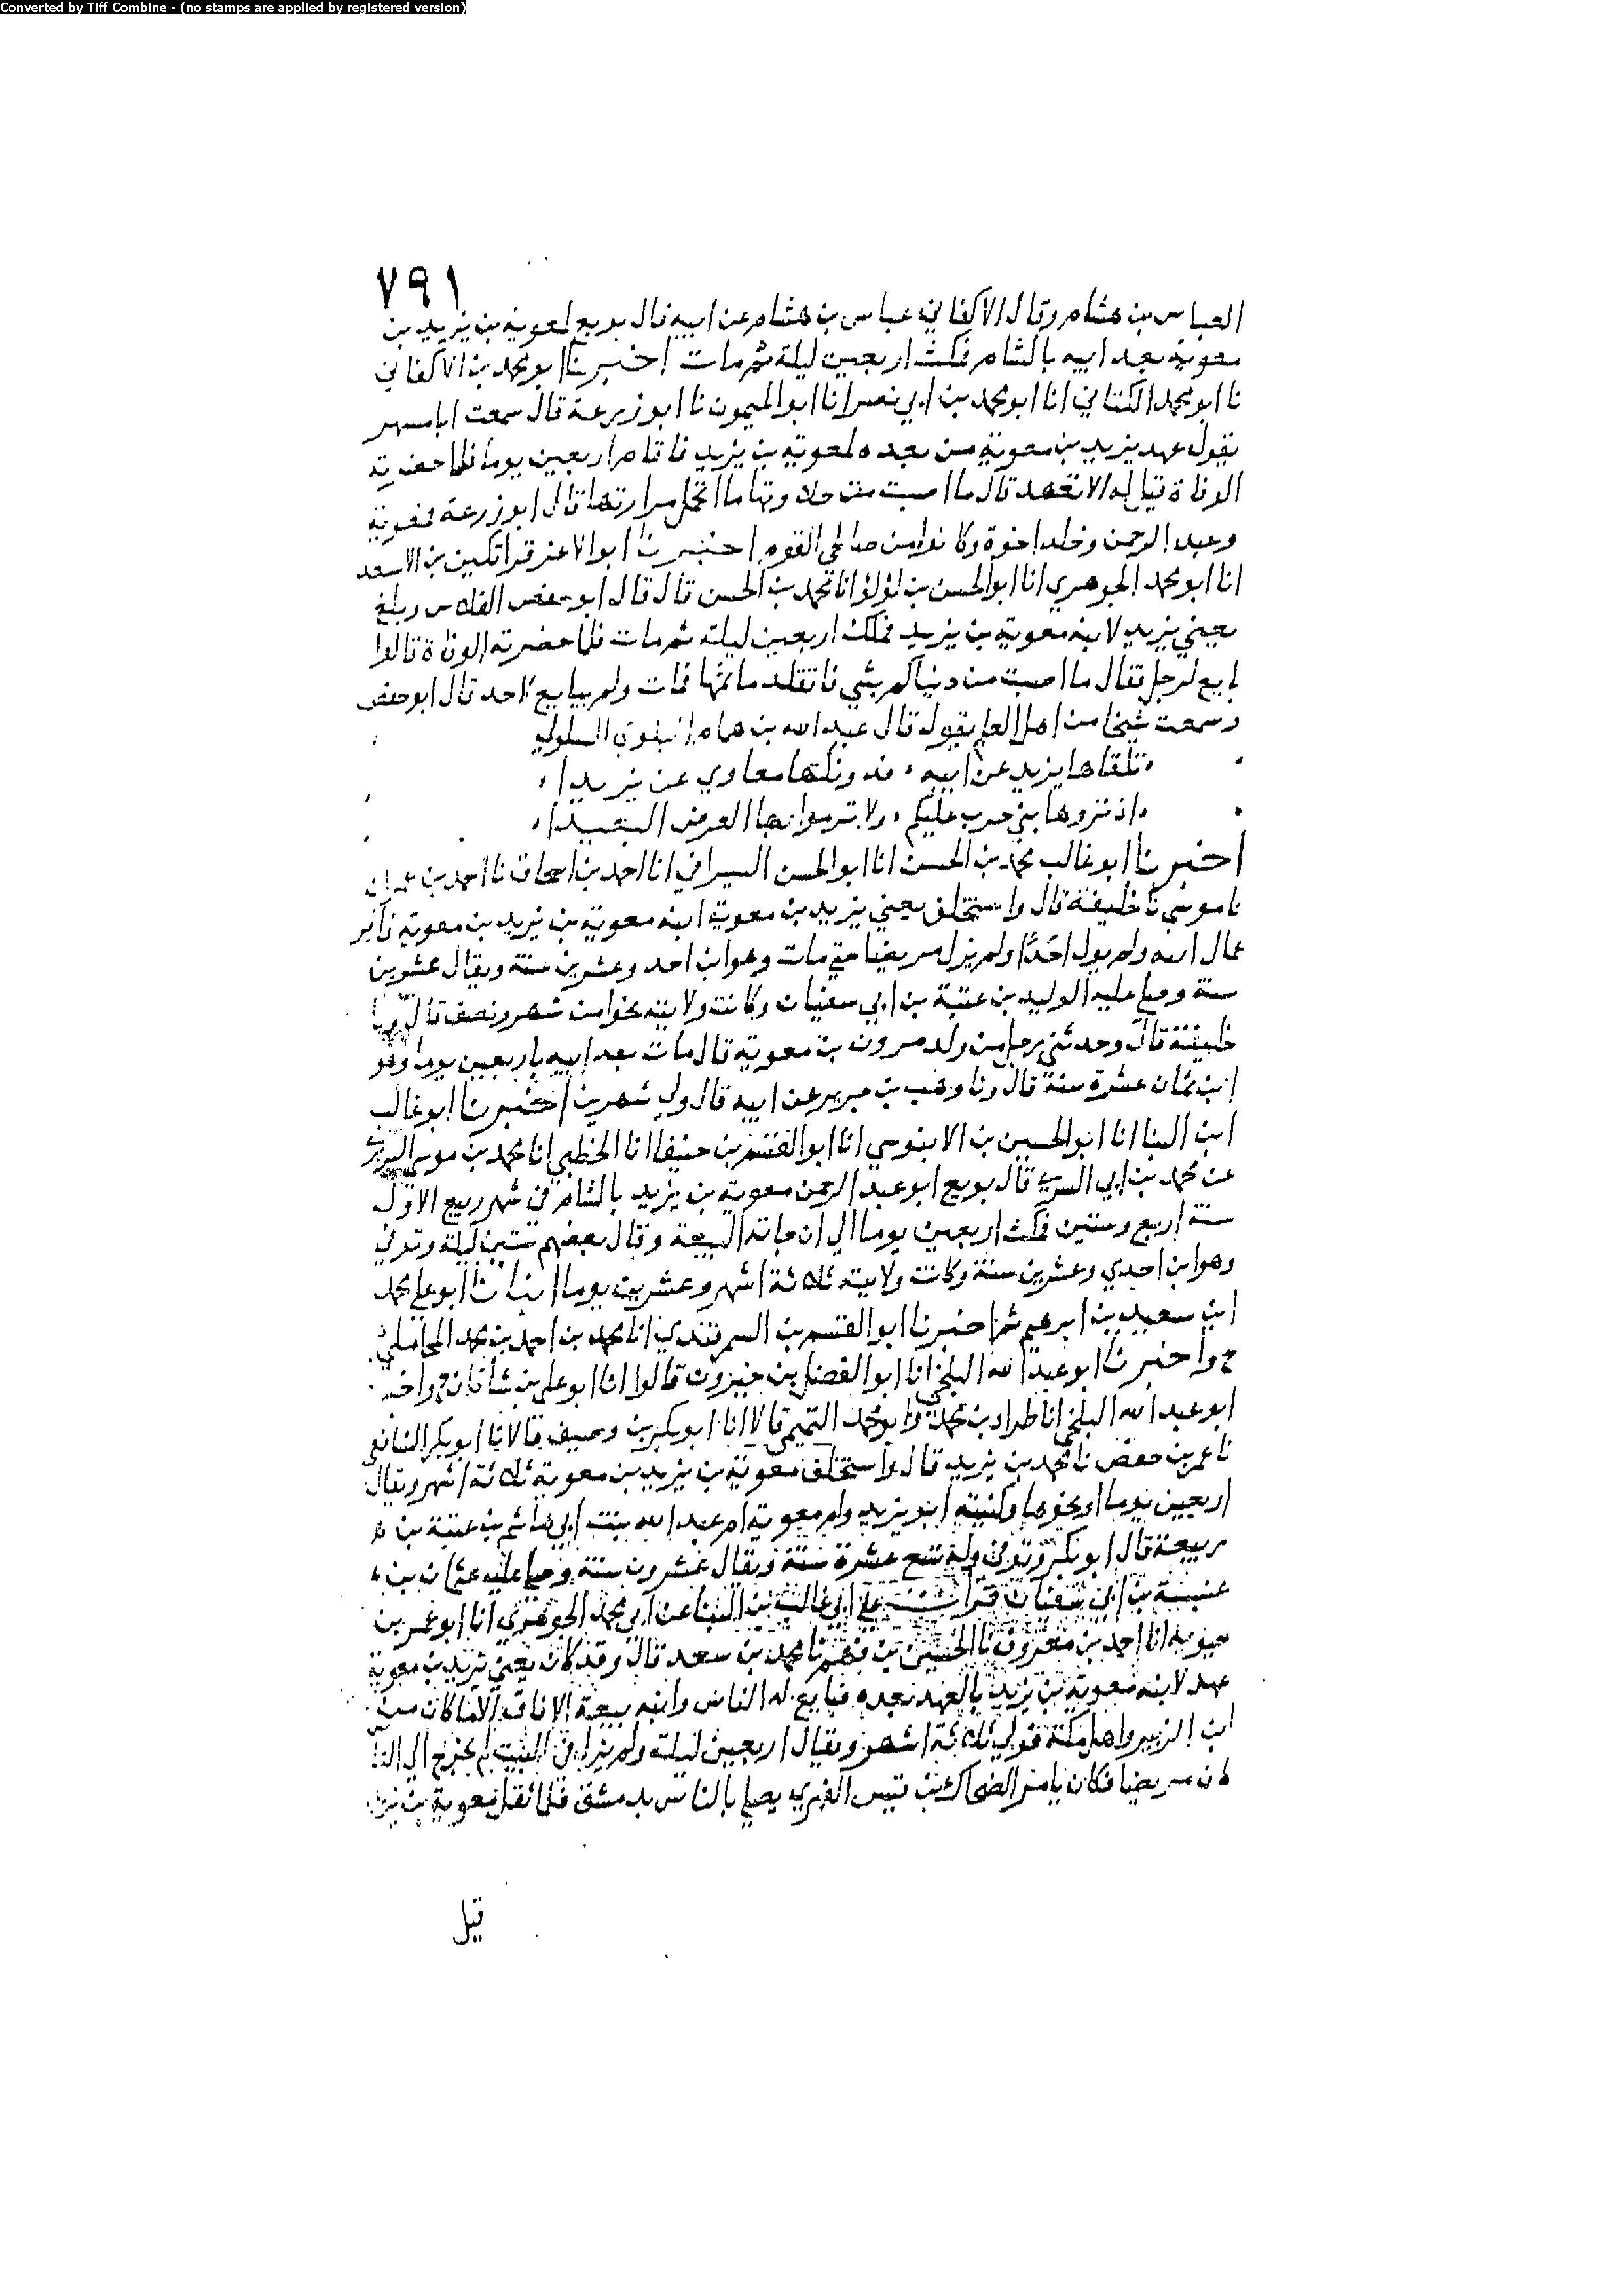 Converted by Tiff Combine - (no stamps are applied by registered version)
٧٩١
العباس بن هشام وقال الاكفاني عباس بن هشام عن ابيه قال بويع لمعوية بن يزيد بن
معوية بعد ابيه بالشام فمكث اربعين ليلة ثم مات اخبرنا ابو محمد بن الاكفاني
نا ابو محمد الكتاني انا ابو محمد بن ابي نصر انا ابو الميمون نا ابو زرعة قال سمعت ابا مسهر
يقول عهد يزيد بن معوية من بعده لمعوية بن يزيد فاقام اربعين يوما فلما حضرته
الوفاة قيل له الا تعهد قال ما اصبت من حلاوتها ما اتحمل مرارتها قال ابو زرعة فمعوية
وعبد الرحمن وخلد اخوة وكانوا من صالحي القوم اخبرنا ابو الاعز قراتكين بن الاسعد
انا ابو محمد الجوهري انا ابو الحسن بن لؤلؤ انا محمد بن الحسن قال قال ابو حفص الفلاس وبلغ
يعني يزيد لابنه معوية بن يزيد فملك اربعين ليلة ثم مات فلما حضرته الوفاة قالوا
بايع لرجل فقال ما اصبت من دنياكم بشي فاتقلد ماثمها فمات ولم يبايع لاحد قال ابو حفص
وسمعت شيخا من اهل العلم يقول قال عبد الله بن همام السلولي
تلقاها يزيد عن ابيه ، فدونكها معاوي عن يزيدا ،
اذ نزوها بني حرب عليكم ، ولا ترموا بها الغرض البعيدا ،
اخبرنا ابو غالب محمد بن الحسن انا ابو الحسن السيرافي انا احمد بن اسحاق نا احمد بن عمران
نا موسى نا خليفة قال واستخلف يعني يزيد بن معوية ابنه معوية بن يزيد بن معوية فاقر
عمال ابيه ولم يول احدا ولم يزل مريضا حتى مات وهو ابن احد وعشرين سنة ويقال عشرين
سنة وصلى عليه الوليد بن عتبة بن ابي سفيان وكانت ولايته نحوا من شهر ونصف قال ونا
خليفة قال وحدثني رجل من ولد مروان بن معوية قال مات بعد ابيه باربعين يوما وهو
ابن ثمان عشرة سنة قال ونا وهب بن جرير عن ابيه قال ولي شهرين اخبرنا ابو غالب
ابن البنا انا ابو الحسين بن الابنوسي انا ابو القسم بن حنيفا انا الخطبي انا محمد بن موسى البربري
عن محمد بن ابي السري قال بويع ابو عبد الرحمن معوية بن يزيد بالشام في شهر ربيع الاول
سنة اربع وستين فمكث اربعين يوما الى ان جاته البيعة وقال بعضهم ستين ليلة وتوفي
وهو ابن احدي وعشرين سنة وكانت ولايته ثلاثة اشهر وعشرين يوما انبانا ابو علي محمد
ابن سعيد بن ابرهيم ثم اخبرنا ابو القسم بن السمرقندي انا محمد بن احمد بن محمد المحاملي
ح واخبرنا ابو عبد الله البلخي انا ابو الفضل بن خيرون قالوا انا ابو علي بن شاذان ح واخبر
ابو عبد الله البلخي انا طراد بن محمد وابو محمد التميمي قالا انا ابو بكر بن وصيف قالا نا ابو بكر الشافعي
نا عمر بن حفص نا محمد بن يزيد قال واستخلف معوية بن يزيد بن معوية ثلاثة اشهر ويقال
اربعين يوما او نحوها وكنيته ابو يزيد وام معوية ام عبد الله بنت ابي هاشم بن عتبة بن
ربيعة قال ابو بكر وتوفي وله تسع عشرة سنة ويقال عشرون سنة وصلى عليه عثمان بن
عنبسة بن ابي سفيان قرات على ابي غالب بن البنا عن ابي محمد الجوهري انا ابو عمر بن
حيويه انا احمد بن معروف نا الحسين بن فهم نا محمد بن سعد قال وقد كان يعني يزيد بن معوية
عهد لابنه معوية بن يزيد بالعهد بعده فبايع له الناس واتته بيعة الافاق الا ما كان من
ابن الزبير واهل مكة فولي ثلاثة اشهر ويقال اربعين ليلة ولم يزل في البيت لم يخرج الى النا
كان مريضا فكان يامر الضحاك بن قيس الفهري يصلي بالناس بدمشق فلما ثقل معوية بن يزيد
قيل